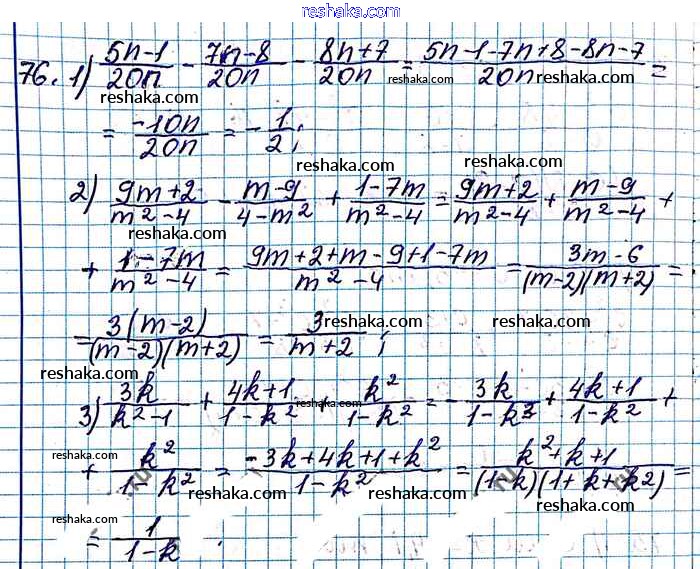 reshaka.com
76. 1) (5n-1)/20n - (7n-8)/20n - (8n+7)/20n = (5n-1-7n+8-8n-7)/20n =
reshaka.com reshaka.com reshaka.com
= -10n/20n = -1/2;
reshaka.com
2) (9m+2)/(m²-4) - (m-9)/(4-m²) + (1-7m)/(m²-4) = (9m+2)/(m²-4) + (m-9)/(m²-4) +
reshaka.com reshaka.com reshaka.com
+ (1-7m)/(m²-4) = (9m+2+m-9+1-7m)/(m²-4) = (3m-6)/((m-2)(m+2)) =
reshaka.com reshaka.com
= 3(m-2)/((m-2)(m+2)) = 3/(m+2);
reshaka.com reshaka.com
3) 3k/(k²-1) + (4k+1)/(1-k²) + k²/(1-k²) = -3k/(1-k³) + (4k+1)/(1-k²) +
reshaka.com reshaka.com
+ k²/(1-k²) = (-3k+4k+1+k²)/(1-k²) = (k²+k+1)/((1-k)(1+k+k²)) =
reshaka.com reshaka.com reshaka.com
= 1/(1-k).
reshaka.com
reshaka.com